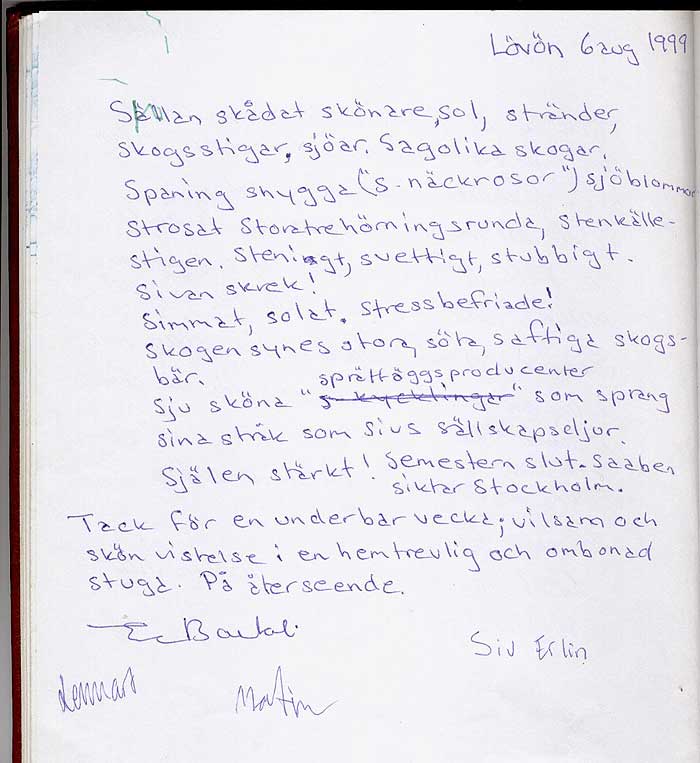 Lövön 6 aug 1999
Sällan skådat skönare, sol, stränder,
skogsstigar, sjöar. Sagolika skogar.
Spaning snygga ("s-näckrosor") sjöblommor
Strosat Storatrehörningsrunda, stenkälle-
stigen. Stenigt, svettigt, stubbigt.
Sivan skrek!
Simmat, solat. Stressbefriade!
Skogen synes stora, söta, saftiga skogs-
bär.
sprättöggsproducenter
Sju sköna "s-kycklingar" som sprang
sina stråk som Sivs sällskapsdjur.
Själen stärkt! Semestern slut. Saaben
siktar Stockholm.
Tack för en underbar vecka; vilsam och
skön vistelse i en hemtrevlig och ombonad
stuga. På återseende.
Siv Erlin
Lennart
Martin